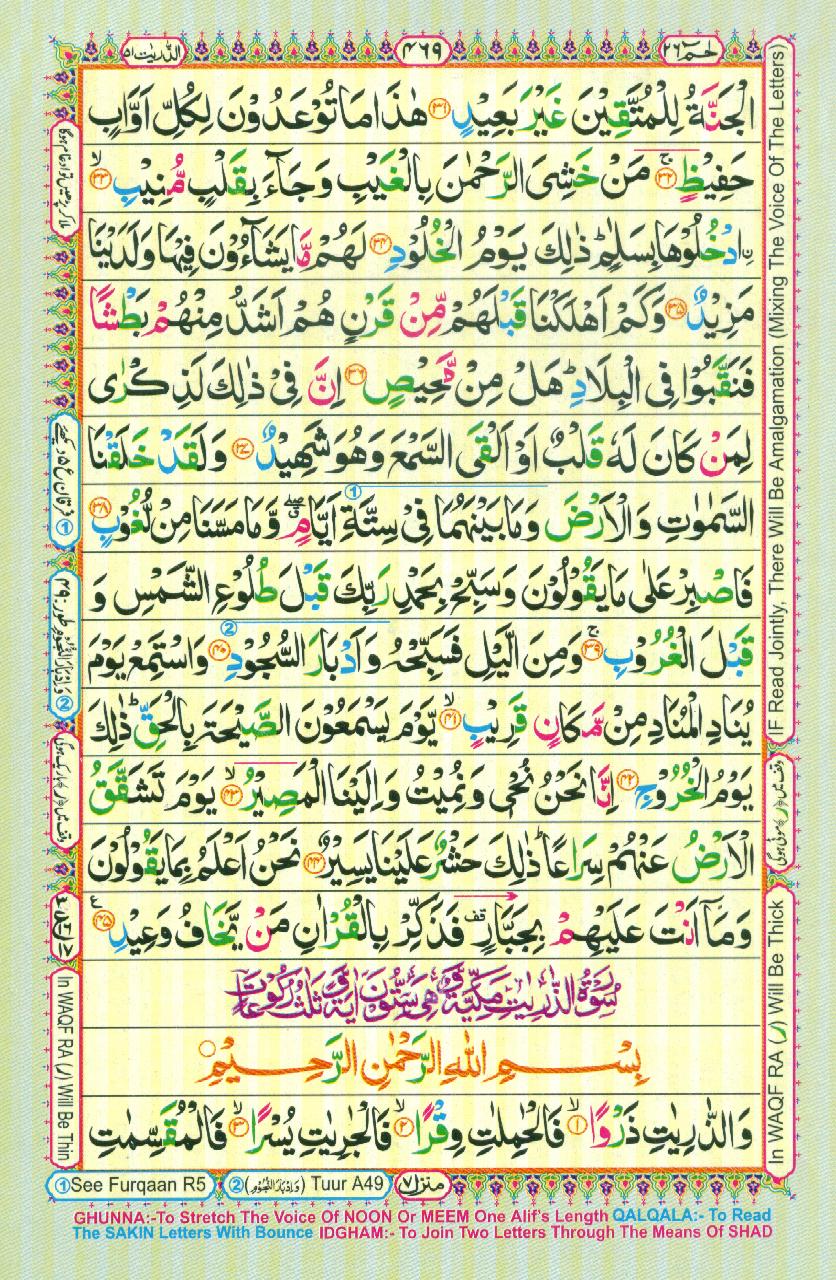 الذریت ۵۱
۴۶۹
حٰمٓ ۲۶
الْجَنَّةُ لِلْمُتَّقِیْنَ غَیْرَ بَعِیْدٍ ﴿۳۱﴾ هٰذَا مَا تُوْعَدُوْنَ لِكُلِّ اَوَّابٍ
حَفِیْظٍ ﴿۳۲﴾ۚ مَنْ خَشِیَ الرَّحْمٰنَ بِالْغَیْبِ وَجَآءَ بِقَلْبٍ مُّنِیْبِ ﴿۳۳﴾ۙ
ن ادْخُلُوْهَا بِسَلٰمٍ ؕ ذٰلِكَ یَوْمُ الْخُلُوْدِ ﴿۳۴﴾ لَهُمْ مَّا یَشَآءُوْنَ فِیْهَا وَلَدَیْنَا
مَزِیْدٌ ﴿۳۵﴾ وَكَمْ اَهْلَكْنَا قَبْلَهُمْ مِّنْ قَرْنٍ هُمْ اَشَدُّ مِنْهُمْ بَطْشًا
فَنَقَّبُوْا فِی الْبِلَادِ ؕ هَلْ مِنْ مَّحِیْصٍ ﴿۳۶﴾ اِنَّ فِیْ ذٰلِكَ لَذِكْرٰی
لِمَنْ كَانَ لَهٗ قَلْبٌ اَوْ اَلْقَی السَّمْعَ وَهُوَ شَهِیْدٌ ﴿۳۷﴾ وَلَقَدْ خَلَقْنَا
السَّمٰوٰتِ وَالْاَرْضَ وَمَا بَیْنَهُمَا فِیْ سِتَّةِ اَیَّامٍ ۖۗ وَّمَا مَسَّنَا مِنْ لُّغُوْبٍ ﴿۳۸﴾
فَاصْبِرْ عَلٰی مَا یَقُوْلُوْنَ وَسَبِّحْ بِحَمْدِ رَبِّكَ قَبْلَ طُلُوْعِ الشَّمْسِ وَ
قَبْلَ الْغُرُوْبِ ﴿۳۹﴾ۚ وَمِنَ الَّیْلِ فَسَبِّحْهُ وَاَدْبَارَ السُّجُوْدِ ﴿۴۰﴾ وَاسْتَمِعْ یَوْمَ
یُنَادِ الْمُنَادِ مِنْ مَّكَانٍ قَرِیْبٍ ﴿۴۱﴾ۙ یَّوْمَ یَسْمَعُوْنَ الصَّیْحَةَ بِالْحَقِّ ؕ ذٰلِكَ
یَوْمُ الْخُرُوْجِ ﴿۴۲﴾ اِنَّا نَحْنُ نُحْیٖ وَنُمِیْتُ وَاِلَیْنَا الْمَصِیْرُ ﴿۴۳﴾ۙ یَوْمَ تَشَقَّقُ
الْاَرْضُ عَنْهُمْ سِرَاعًا ؕ ذٰلِكَ حَشْرٌ عَلَیْنَا یَسِیْرٌ ﴿۴۴﴾ نَحْنُ اَعْلَمُ بِمَا یَقُوْلُوْنَ
وَمَآ اَنْتَ عَلَیْهِمْ بِجَبَّارٍ قف فَذَكِّرْ بِالْقُرْاٰنِ مَنْ یَّخَافُ وَعِیْدِ ﴿۴۵﴾ع
سُوْرَةُ الذّٰرِیٰتِ مَكِّیَّةٌ وَّهِیَ سِتُّوْنَ اٰیَةً وَّثَلٰثُ رُكُوْعَاتٍ
بِسْمِ اللّٰهِ الرَّحْمٰنِ الرَّحِیْمِ
وَالذّٰرِیٰتِ ذَرْوًا ﴿۱﴾ۙ فَالْحٰمِلٰتِ وِقْرًا ﴿۲﴾ۙ فَالْجٰرِیٰتِ یُسْرًا ﴿۳﴾ۙ فَالْمُقَسِّمٰتِ
IF Read Jointly, There Will Be Amalgamation (Mixing The Voice Of The Letters)
وقف میں (ر) موٹی ہوگی
In WAQF RA (ر) Will Be Thick
ملا کر پڑھیں تو ادغام ہوگا
① فرقان ع ۵ دیکھئے
② وَاِدْبَارَ النُّجُوْمِ طور: ۴۹
وقف میں (ر) باریک ہوگی
In WAQF RA (ر) Will Be Thin
① See Furqaan R5
② (وَاِدْبَارَ النُّجُوْمِ) Tuur A49
منزل ۷
GHUNNA:-To Stretch The Voice Of NOON Or MEEM One Alif's Length QALQALA:- To Read
The SAKIN Letters With Bounce IDGHAM:- To Join Two Letters Through The Means Of SHAD